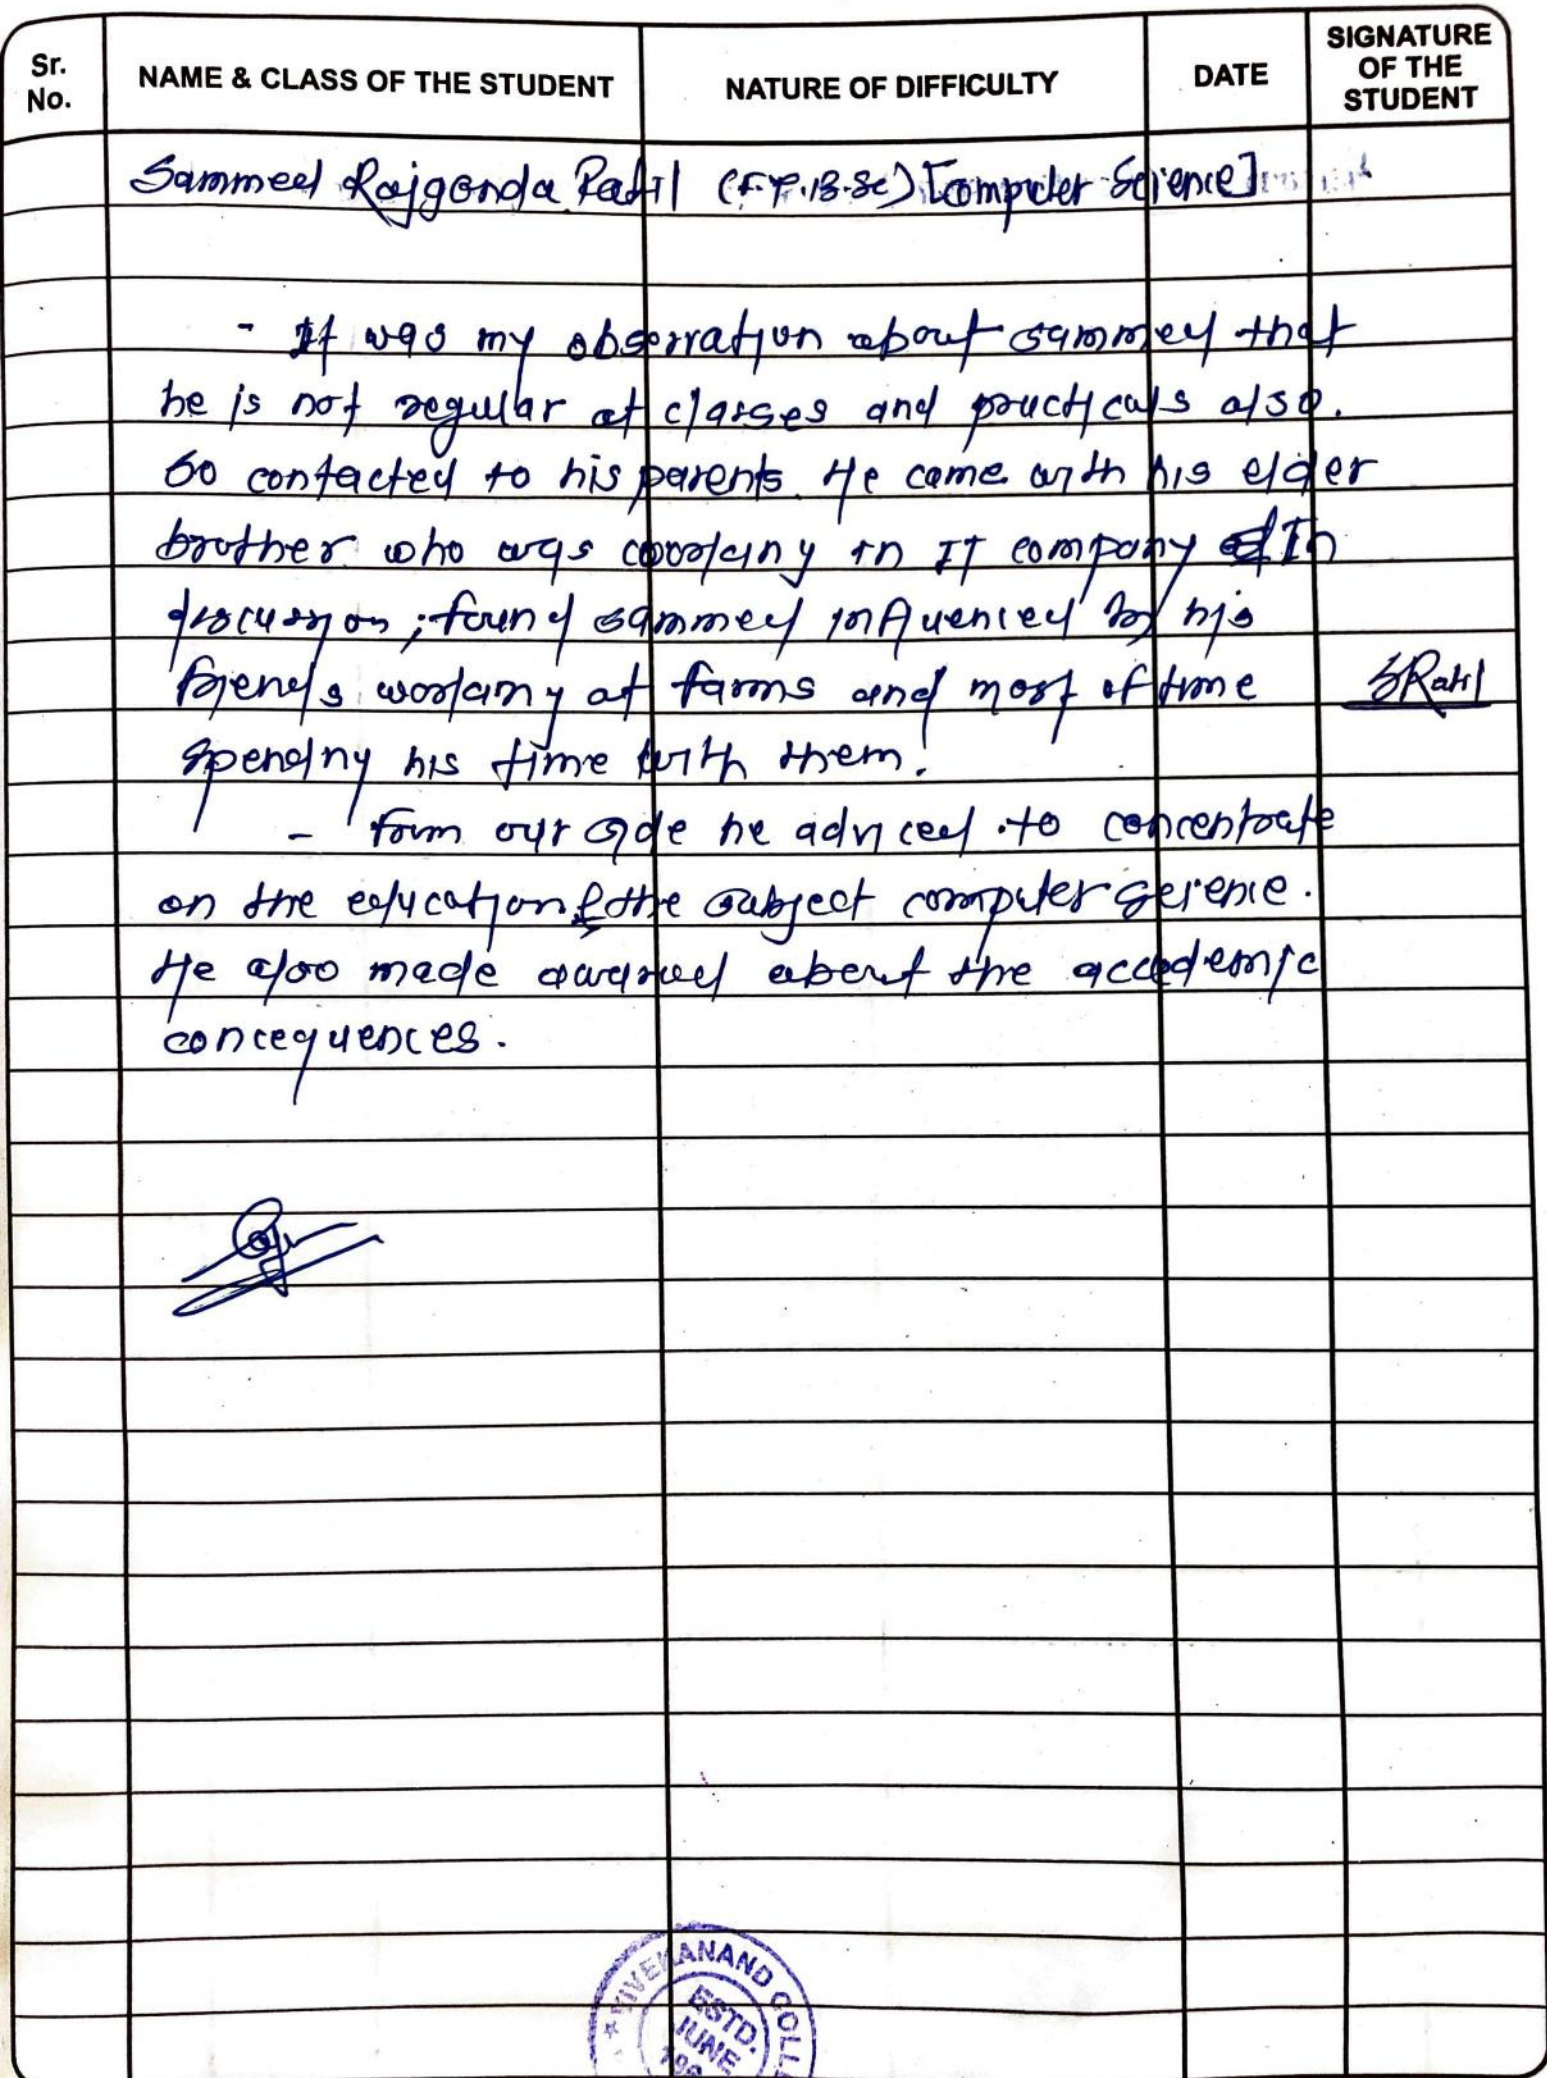 Sr. No.
NAME & CLASS OF THE STUDENT
NATURE OF DIFFICULTY
DATE
SIGNATURE OF THE STUDENT
Sammeed Rajgonda Patil (F.Y.B.Sc) [Computer Science]
- It was my obserration about sammed that
he is not regular at classes and practicals also.
So contacted to his parents. He came with his elder
brother who was working in IT company In
discussion ; found sammed influenced by his
friends working at farms and most of time
SRPatil
spending his time with them.
- from our side he adviced to concentrate
on the education & the subject computer science.
He also made awared about the accademic
concequences.
VIVEKANAND COLL
ESTD.
JUNE